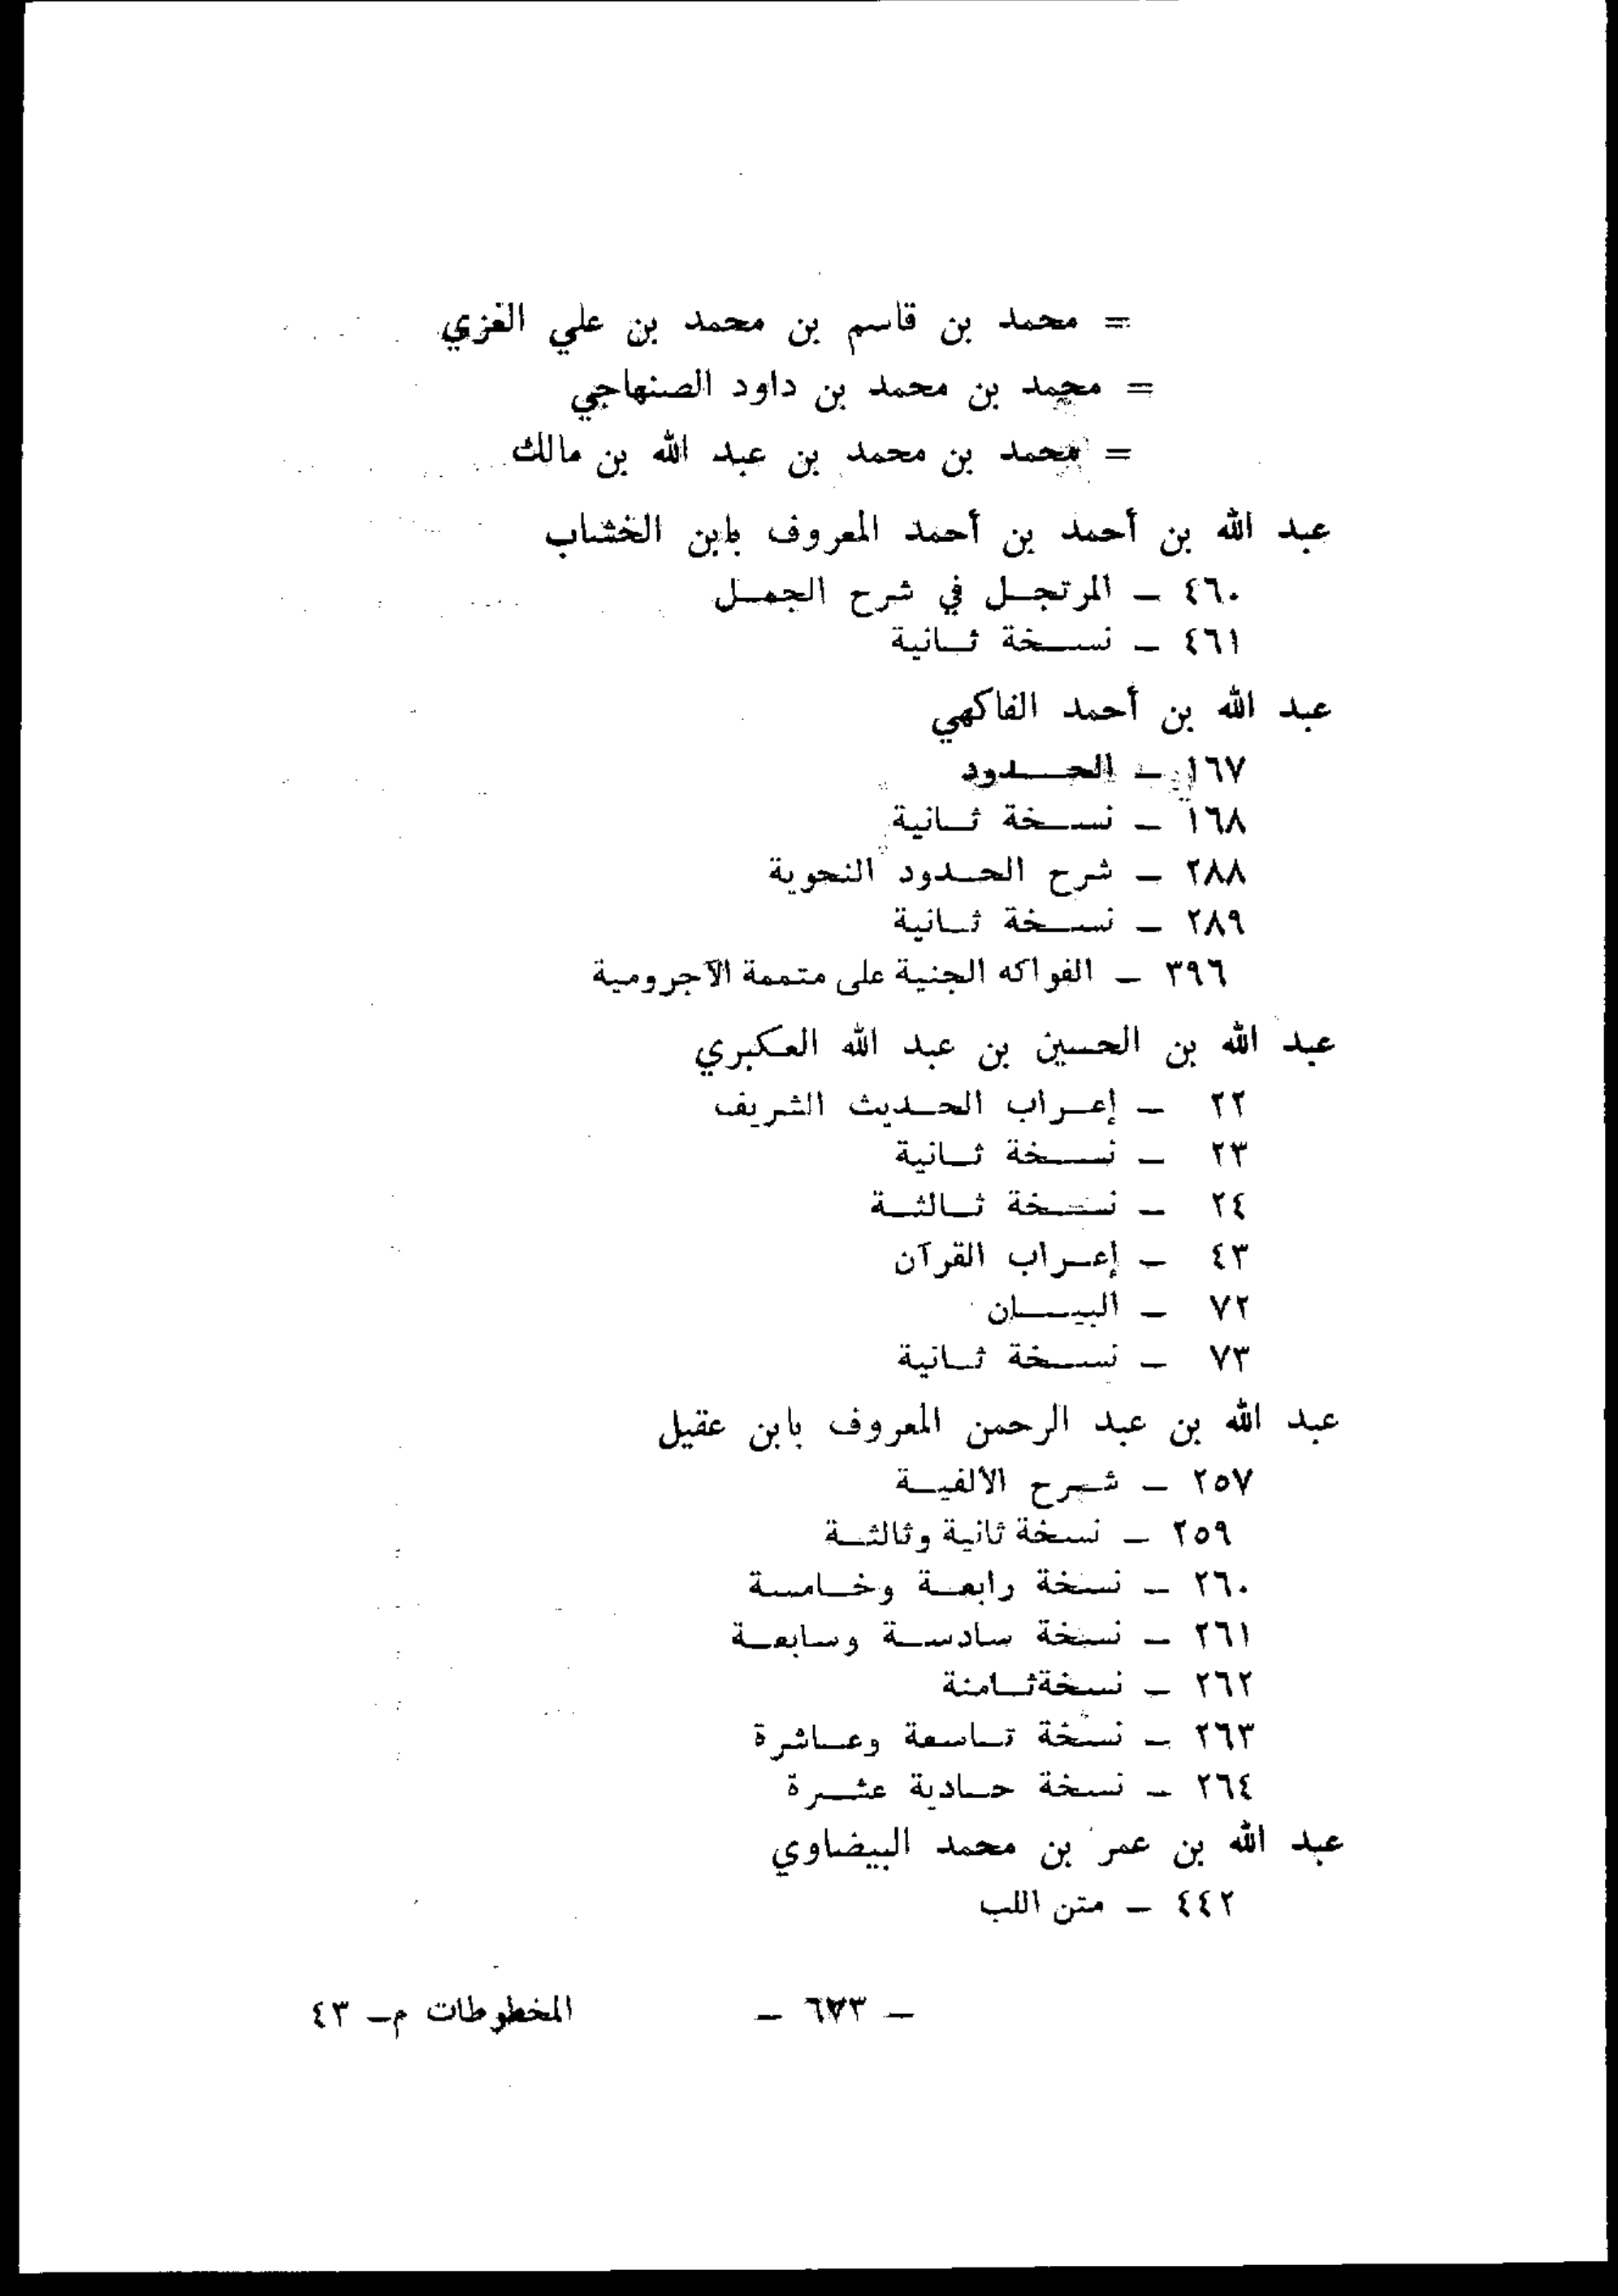 = محمد بن قاسم بن محمد بن علي الغزي
= محمد بن محمد بن داود الصنهاجي
= محمد بن محمد بن عبد الله بن مالك
عبد الله بن أحمد بن أحمد المعروف بابن الخشاب
٤٦٠ – المرتجل في شرح الجمل
٤٦١ – نسخة ثانية
عبد الله بن أحمد الفاكهي
١٦٧ – الحدود
١٦٨ – نسخة ثانية
٢٨٨ – شرح الحدود النحوية
٢٨٩ – نسخة ثانية
٣٩٦ – الفواكه الجنية على متممة الآجرومية
عبد الله بن الحسين بن عبد الله العكبري
٢٢ – إعراب الحديث الشريف
٢٣ – نسخة ثانية
٢٤ – نسخة ثالثة
٤٣ – إعراب القرآن
٧٢ – البيان
٧٣ – نسخة ثانية
عبد الله بن عبد الرحمن المعروف بابن عقيل
٢٥٧ – شرح الالفية
٢٥٩ – نسخة ثانية وثالثة
٢٦٠ – نسخة رابعة وخامسة
٢٦١ – نسخة سادسة وسابعة
٢٦٢ – نسخة ثامنة
٢٦٣ – نسخة تاسعة وعاشرة
٢٦٤ – نسخة حادية عشرة
عبد الله بن عمر بن محمد البيضاوي
٤٤٢ – متن اللب
– ٦٧٣ – المخطوطات م– ٤٣